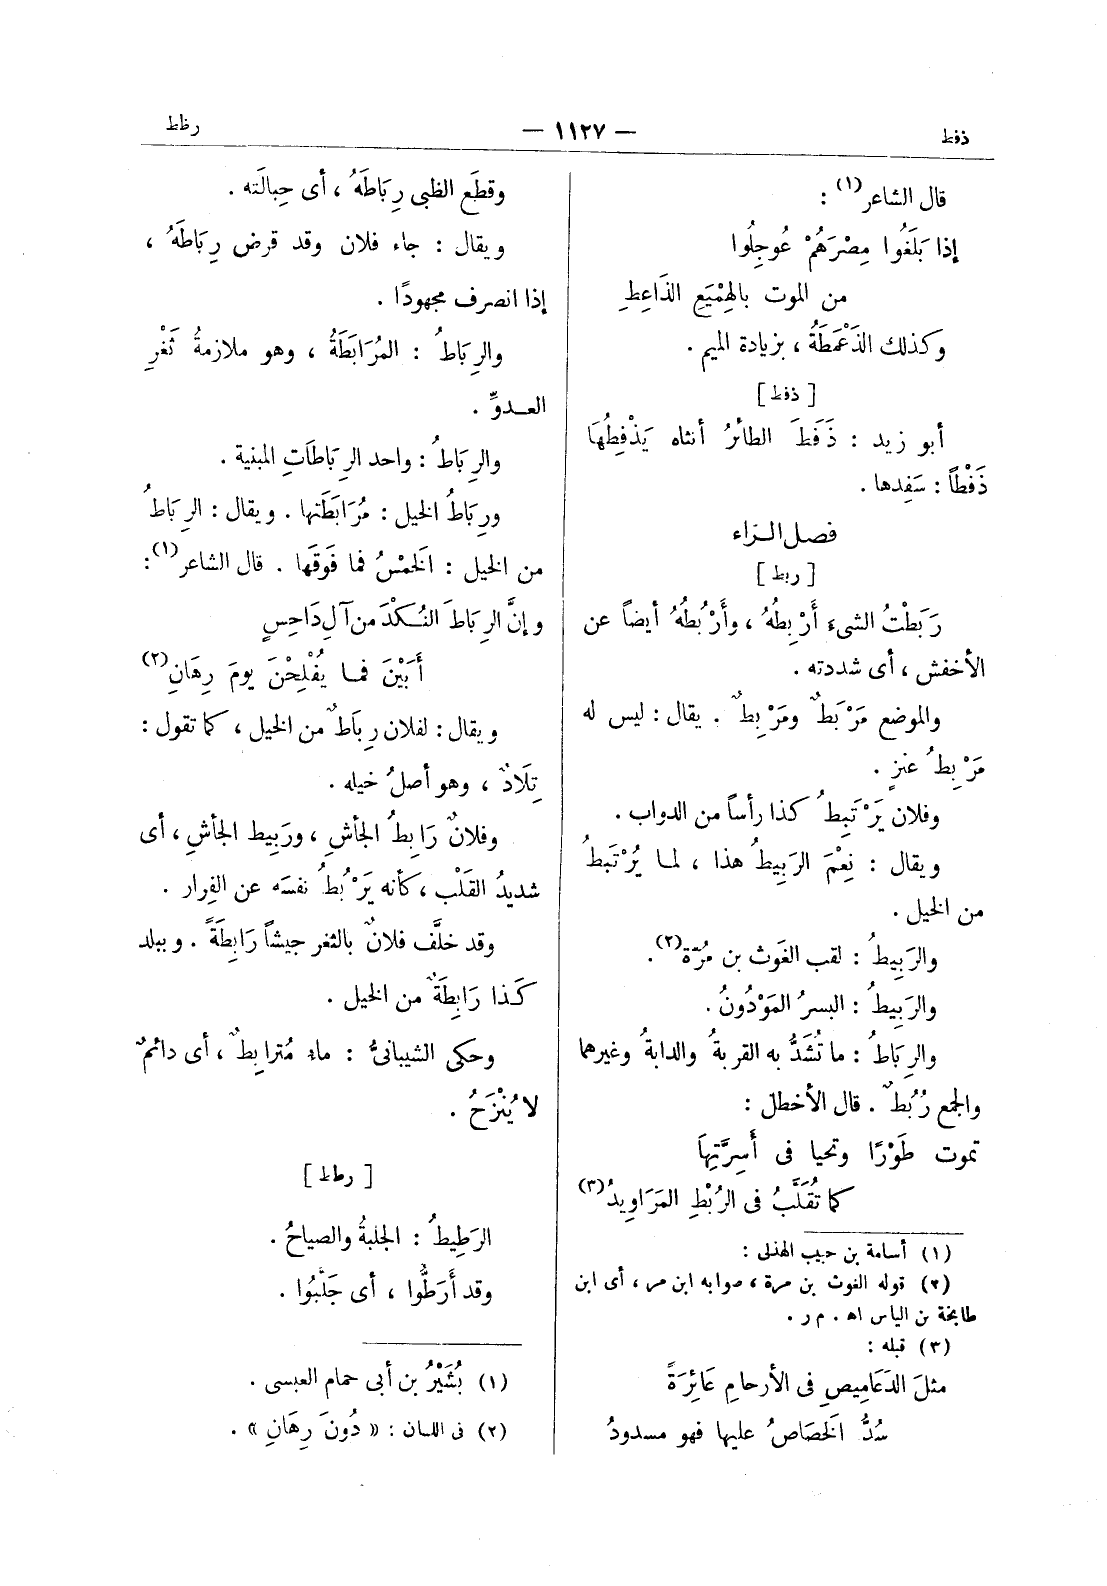 ذفط
— ١١٢٧ —
رطط
قال الشاعر(١) :
إذا بَلَغُوا مِصْرَهُمْ عُوجِلُوا
من الموت بالهِمْيَعِ الذَاعِطِ
وكذلك الذَعْمَطَةُ ، بزيادة الميم .
[ ذفط ]
أبو زيد : ذَفَطَ الطائرُ أنثاه يَذْفِطُهَا
ذَفْطاً : سَفِدها .
فصل الراء
[ ربط ]
رَبَطْتُ الشىء أَرْبِطُهُ ، وأَرْبُطُهُ أيضاً عن
الأخفش ، أى شددته .
والموضع مَرْبَطٌ ومَرْبِطٌ . يقال : ليس له
مَرْبِطُ عنزٍ .
وفلان يَرْتَبِطُ كذا رأساً من الدواب .
ويقال : نِعْمَ الرَبِيطُ هذا ، لما يُرْتَبَطُ
من الخيل .
والرَبِيطُ : لقب الغَوث بن مُرّة(٢) .
والرَبِيطُ : البسرُ المَوْدُونُ .
والرِبَاطُ : ما تُشَدُّ به القربةُ والدابةُ وغيرهما
والجمع رُبُطٌ . قال الأخطل :
تموت طَوْرًا وتحيا فى أَسِرَّتِهَا
كما تُقَلَّبُ فى الرُبْطِ المَرَاوِيدُ(٣)
(١) أسامة بن حبيب الهذلى :
(٢) قوله الغوث بن مرة ، صوابه ابن مر ، أى ابن
طابخة بن الياس اه . م ر .
(٣) قبله :
مثلَ الدَعَامِيصِ فى الأرحامِ عَائِرَةً
سُدَّ الخَصَاصُ عليها فهو مسدودُ
وقطَع الظبى رِبَاطَهُ ، أى حِبالَته .
ويقال : جاء فلان وقد قرض رِبَاطَهُ ،
إذا انصرف مجهودًا .
والرِبَاطُ : المُرَابَطَةُ ، وهو ملازمةُ ثَغْرِ
العدوِّ .
والرِبَاطُ : واحد الرِبَاطَاتِ المبنية .
ورِبَاطُ الخيل : مُرَابَطَتها . ويقال : الرِبَاطُ
من الخيل : الَخمْسُ فما فَوْقَها . قال الشاعر(١) :
وإنَّ الرِبَاطَ النُكْدَ من آلِ دَاحِسٍ
أَبَيْنَ فما يُفْلِحْنَ يومَ رِهَانِ(٢)
ويقال : لفلان رِبَاطٌ من الخيل ، كما تقول :
تِلَادٌ ، وهو أصلُ خيله .
وفلانٌ رَابِطُ الجأشِ ، ورَبِيط الجأشِ ، أى
شديدُ القَلْب ، كأنه يَرْبُطُ نفسَه عن الفِرار .
وقد خلَّف فلانٌ بالثغر جيشاً رَابِطَةً . وببلد
كَذا رَابِطَةٌ من الخيل .
وحكى الشيبانىُّ : ماء مُترابِطٌ ، أى دائمٌ
لا يُنْزَحُ .
[ رطط ]
الرَطِيطُ : الجلبةُ والصياحُ .
وقد أَرَطُّوا ، أى جَلَّبُوا .
(١) بُشَيْرُ بن أبى حمام العبسى .
(٢) فى اللسان : « دُونَ رِهَانِ » .